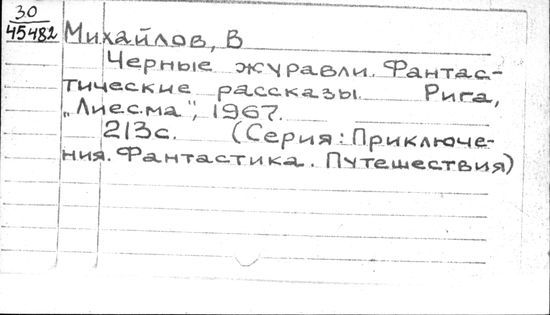 30
45482
Михайлов, В
Черные журавли. Фантас-
тические рассказы Рига,
„Лиесма", 1967.
213с. (Серия: Приключе-
ния. Фантастика. Путешествия)